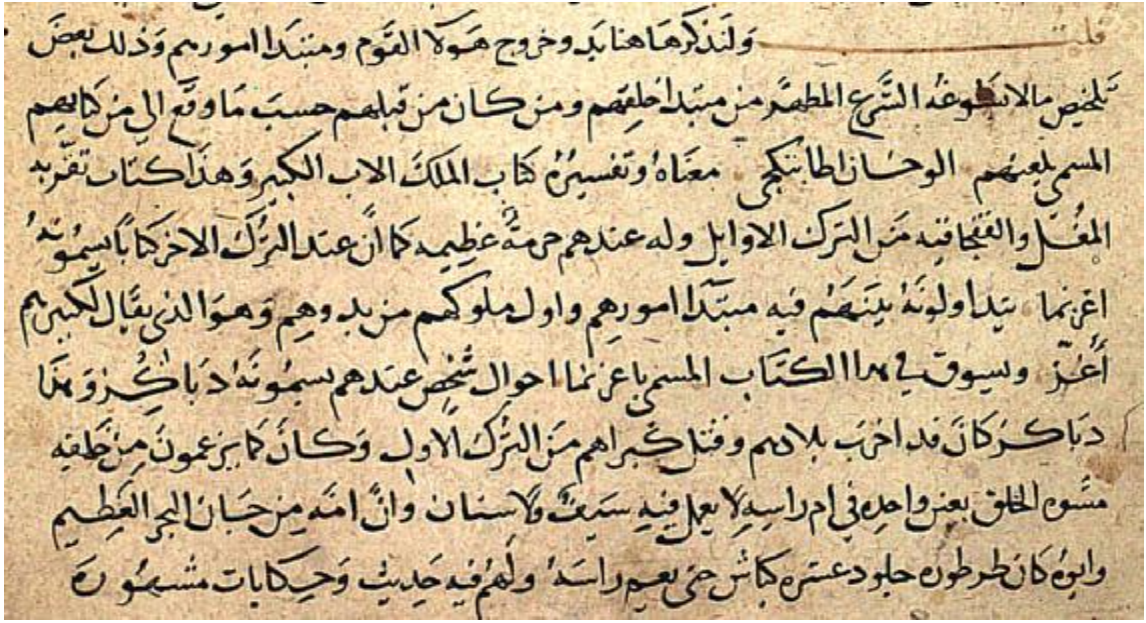 قلت ولنذكرها هنا بد وخروج هولا القوم ومبتدا امورهم وذلك بعض
تلخيص مالا الشرع المطهر من مبتدا خلقهم ومن كان من قبلهم حسب ما وقع الي من كتابهم
المسمى بلغتهم الوخان اطا بتكجى معناه وتفسيره كتاب الملك الاب الكبير وهذا كتاب تقر به
المغل والقفجاقيه من الترك الاوايل وله عندهم حرمة عظيمه كما ان عند الترك الاخر كتابا يسمونه
اغزنما يتداولونه بينهم فيه مبتدا امورهم واول ملوكهم من بدوهم وهو الذي يقال لكبيرهم
أغز ويسوق في هدا الكتاب المسمى باغزنما احوال شخص عندهم يسمونه دباكز وهذا
دباكز كان قد اخرب بلادهم وقتل كبراهم من الترك الاول وكان كما يزعمون من خلقه
مشوه الخلق بعين واحده في ام راسه لا يعمل فيه سيف ولا سنان وان امه من جان البحر العظيم
وابوه كان طرطوره جلود عشره كباش حتى يعم راسه ولهم فيه حديث وحكايات مشهوره